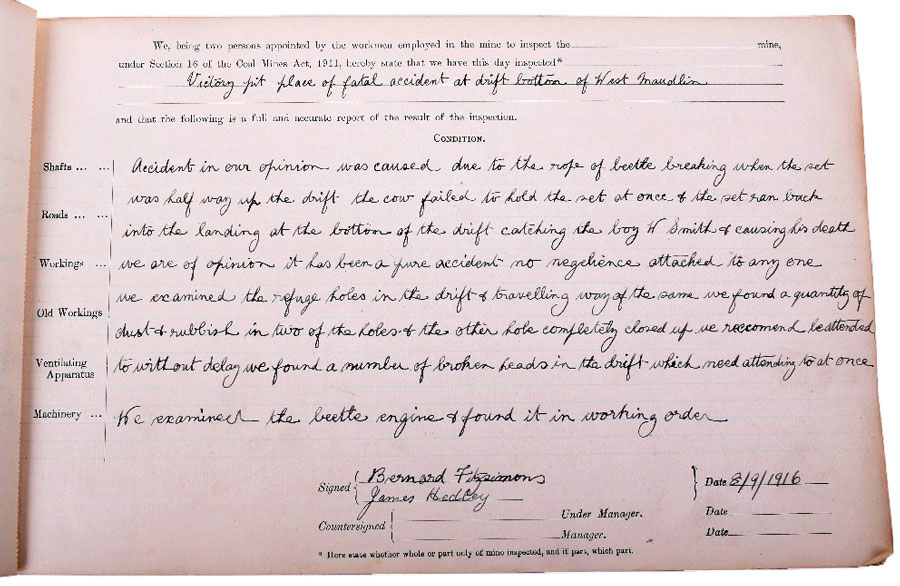 We, being two persons appointed by the workmen employed in the mine to inspect the mine,
under Section 16 of the Coal Mines Act, 1911, hereby state that we have this day inspected*
Victory pit place of fatal accident at drift bottom of West Maudlin
and that the following is a full and accurate report of the result of the inspection.
CONDITION.
Shafts ... ... Accident in our opinion was caused due to the rope of beetle breaking when the set
was half way up the drift the cow failed to hold the set at once & the set ran back
Roads ... ... into the landing at the bottom of the drift catching the boy W Smith & causing his death
Workings ... we are of opinion it has been a pure accident no neglience attached to any one
we examined the refuge holes in the drift & travelling way of the same we found a quantity of
Old Workings dust & rubbish in two of the holes & the other hole completely closed up we reccomend be attended
Ventilating Apparatus to without delay we found a number of broken heads in the drift which need attending to at once
Machinery ... We examined the beetle engine & found it in working order
Signed Bernard Fitzsimons Date 3/9/1916
James Hedley
Countersigned Under Manager. Date
Manager. Date
* Here state whether whole or part only of mine inspected, and if part, which part.